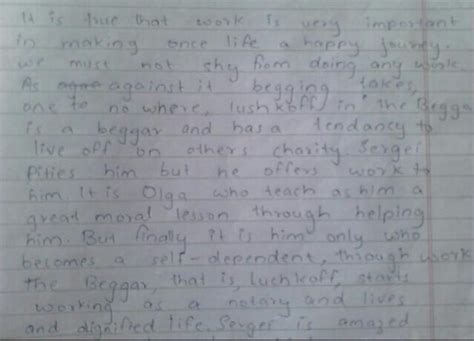 It is true that work is very important
in making once life a happy journy.
we must not shy from doing any work.
As against it begging takes,
one to no where, lushkoff in the Begga
is a beggar and has a tendancy to
live off on others charity. Sergei
Pities him but he offers work to
him. It is Olga who teach as him a
great moral lesson through helping
him. But finally it is him only who
becomes a self-dependent, through work
the Beggar, that is, luchkoff, starts
working as a notary and lives
and dignified life. Sergei is amazed